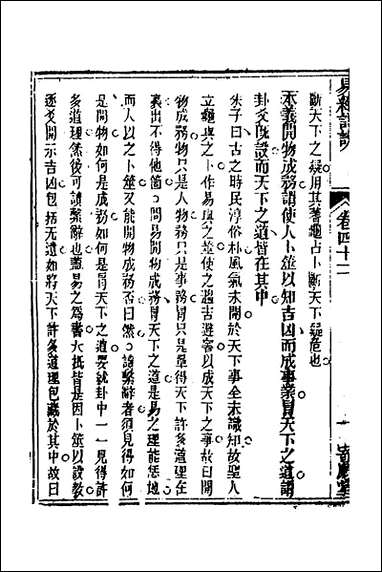 斷天下之疑用其蓍龜占卜斷天下疑危也
本義開物成務謂使人卜筮以知吉凶而成事業冒天下之道謂
卦爻旣設而天下之道皆在其中
朱子曰古之時民淳俗朴風氣未開於天下事全未識知故聖人
立龜與之卜作易與之筮使之趨吉避害以成天下之事故曰開
物成務物只是人物務只是事務冒只是罩得天下許多道理在
裏出不得他箇○問易開物成務冒天下之道是易之理能恁地
而人以之卜筮又能開物成務否曰然○論繫辭者須見得如何
是開物如何是成務如何是冒天下之道要就卦中一一見得許
多道理然後可讀繫辭也蓋易之為書大抵皆是因卜筮以設教
逐爻開示吉凶包括無遺如將天下許多道理包藏於其中故曰
卷四十二